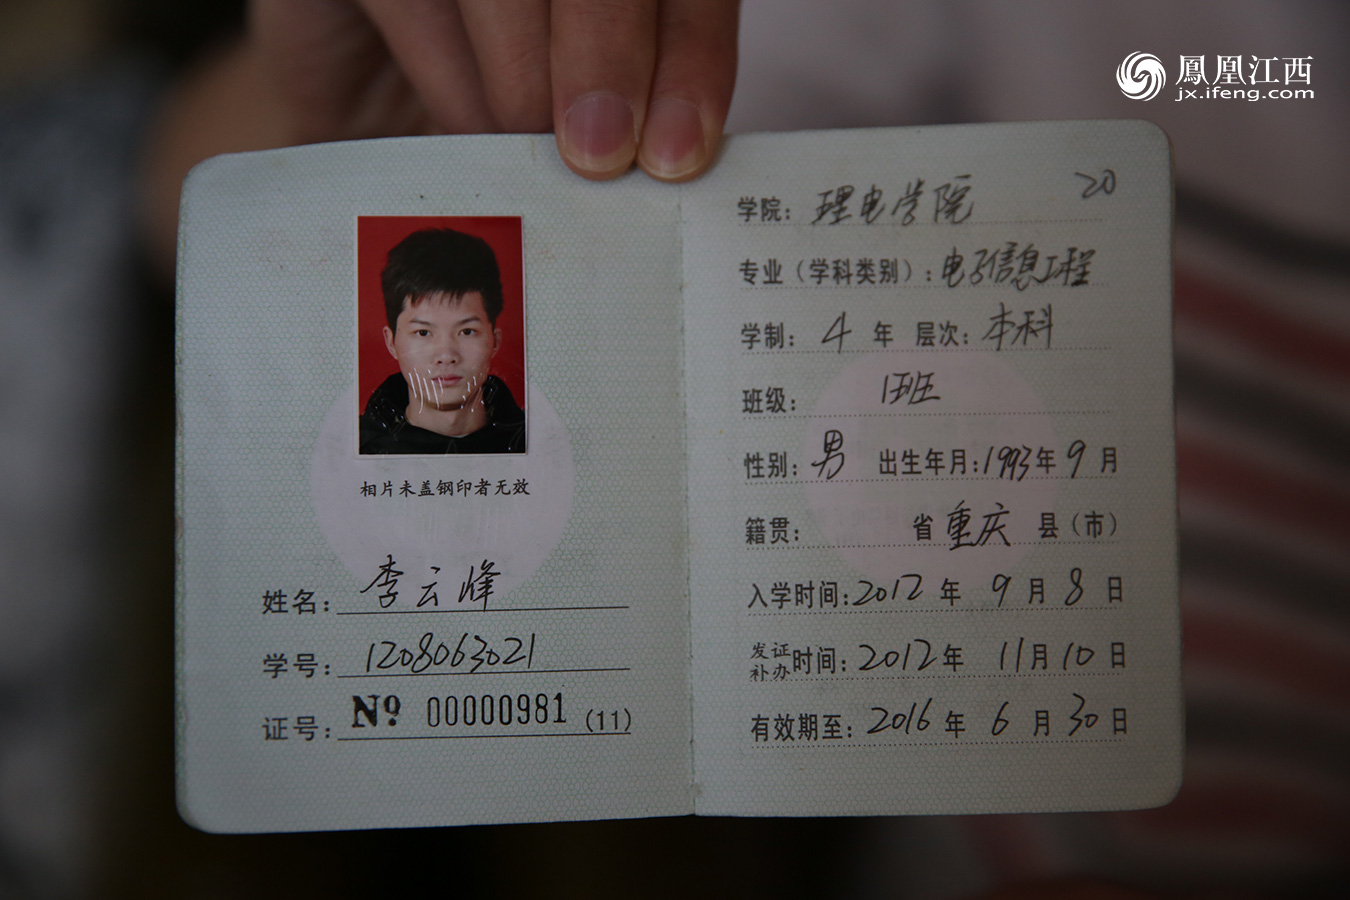 鳳凰江西
jx.ifeng.com
相片未盖钢印者无效
姓名：李云峰
学号：1208063021
证号：Nº 00000981 (11)
20
学院：理电学院
专业（学科类别）：电子信息工程
学制：4 年 层次：本科
班级：1班
性别：男 出生年月：1993年9月
籍贯： 省重庆 县（市）
入学时间：2012年 9月 8日
发证补办时间：2012年 11月10日
有效期至：2016年 6月30日